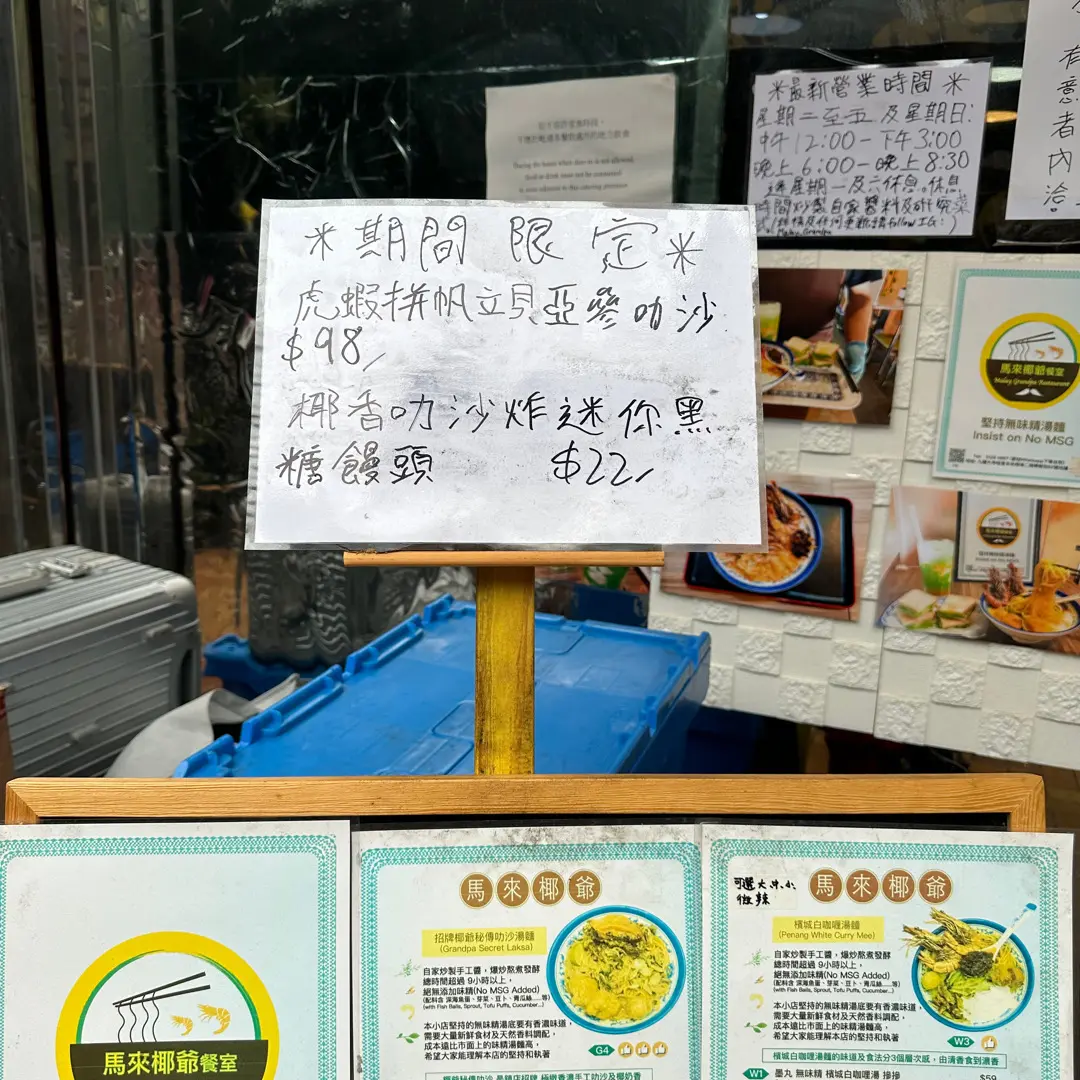 *期間 限 定*
虎蝦拼帆立貝亞參叻沙
$98/
椰香叻沙炸迷你黑
糖饅頭 $22/
*最新營業時間*
星期二至五及星期日:
中午12:00-下午3:00
晚上6:00-晚上8:30
逢星期一及六休息。休息
時間炒製自家醬料及研究菜
有意者內洽
馬來椰爺餐室
Malay Grandpa Restaurant
堅持無味精湯麵
Insist on No MSG
馬來椰爺餐室
馬來椰爺
招牌椰爺秘傳叻沙湯麵
(Grandpa Secret Laksa)
自家炒製手工醬,爆炒熬煮發酵
總時間超過 9小時以上,
絕無添加味精(No MSG Added)
(配料含 深海魚蛋、芽菜、豆卜、青瓜絲......等)
(with Fish Balls, Sprout, Tofu Puffs, Cucumber...)
本小店堅持的無味精湯底要有香濃味道,
需要大量新鮮食材及天然香料調配,
成本遠比市面上的味精湯麵高,
希望大家能理解本店的堅持和執著
G4
可選大中小
微辣
馬來椰爺
檳城白咖喱湯麵
(Penang White Curry Mee)
自家炒製手工醬,爆炒熬煮發酵
總時間超過 9小時以上,
絕無添加味精(No MSG Added)
(配料含 深海魚蛋、芽菜、豆卜、青瓜絲......等)
(with Fish Balls, Sprout, Tofu Puffs, Cucumber...)
本小店堅持的無味精湯底要有香濃味道,
需要大量新鮮食材及天然香料調配,
成本遠比市面上的味精湯麵高,
希望大家能理解本店的堅持和執著
W3
檳城白咖喱湯麵的味道及食法分3個層次感,由清香食到濃香
W1 墨丸 無味精 檳城白咖喱湯 $59